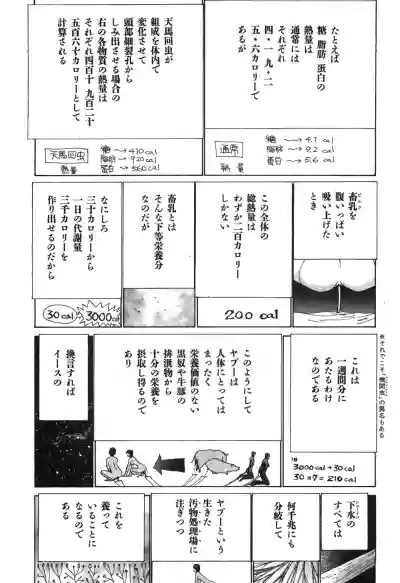 たとえば
糖 脂肪 蛋白の
熱量は
通常には
それぞれ
四・一 九・二
五・六カロリーで
あるが
天馬回虫が
組成を体内で
変化させて
頭部細裂孔から
しみ出させる場合の
右の各物質の熱量は
それぞれ四百十 九百二十
五百六十カロリーとして
計算される
通常
熱量
糖→4.1 cal
脂肪→9.2 cal
蛋白→5.6 cal
天馬回虫
熱量
糖→410 cal
脂肪→920 cal
蛋白→560 cal
畜乳を
腹いっぱい
吸い上げた
とき
この全体の
総熱量は
わずか二百カロリー
しかない
200 cal
畜乳とは
そんな下等栄養分
なのだが
なにしろ
三十カロリーから
一日の代謝量
三千カロリーを
作り出せるのだから
30 cal
3000 cal
※それでこそ、「機関虫」の異名もある
これは
一週間分に
あたるわけ
なのである
3000 cal→30 cal
30×7=210 cal
このようにして
ヤプーは
人体にとっては
まったく
栄養価値のない
黒奴や牛豚の
排泄物から
十分の栄養を
摂取し得るので
換言すれば
イースの
下水の
すべては
何千兆にも
分岐して
ヤプーという
生きた
汚物処理場に
注ぎつつ
これを
養って
いることに
なるので
ある